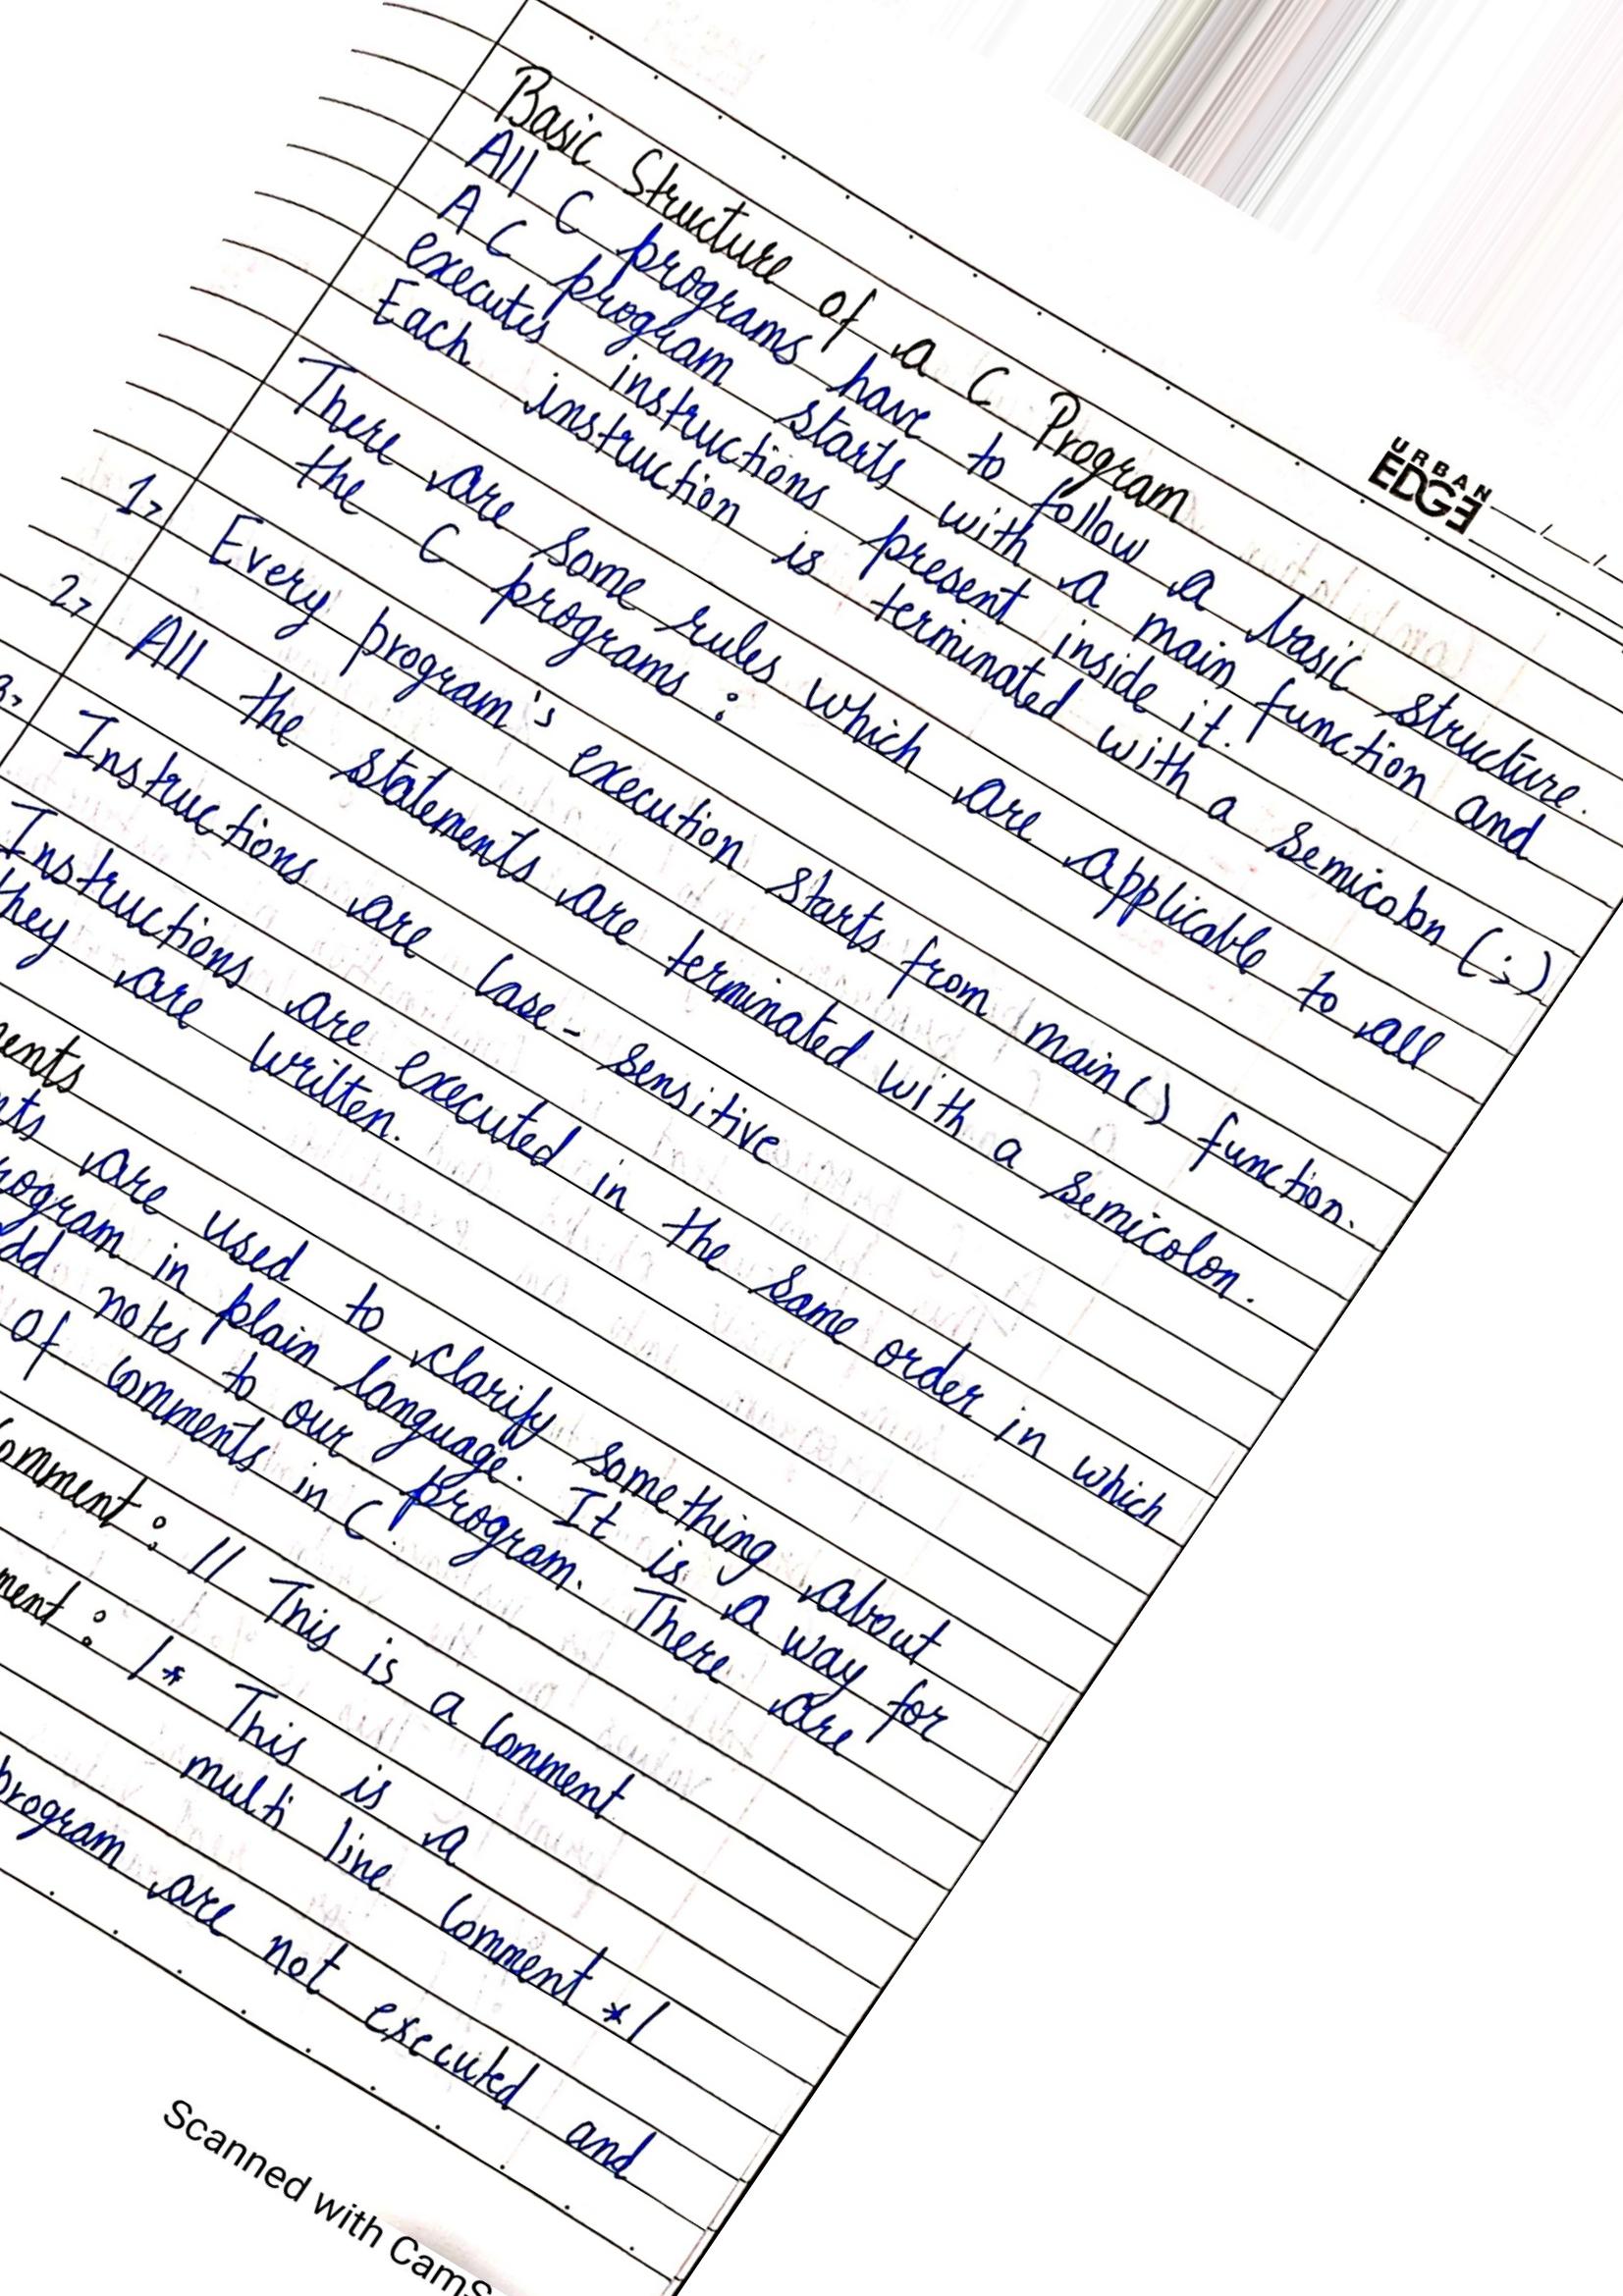 URBAN
EDGE
Basic Structure of a C Program
All C programs have to follow a basic structure.
A C program starts with a main function and
executes instructions present inside it.
Each instruction is terminated with a semicolon (;)
There are some rules which are applicable to all
the C programs :
1> Every program's execution starts from main() function.
2> All the statements are terminated with a semicolon.
3> Instructions are case-sensitive
Instructions are executed in the same order in which
they are written.
ents
nts are used to clarify something about
rogram in plain language. It is a way for
dd notes to our program. There are
of comments in C.
omment : // This is a comment
ment : /* This is a
multi line comment */
program are not executed and
Scanned with CamS